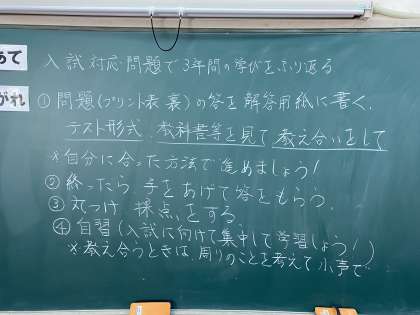 めあて
入試対応問題で3年間の学びをふり返る
ながれ
①問題(プリント表裏)の答を解答用紙に書く.
テスト形式.教科書等を見て 教え合いをして
*自分に合った方法で進めましょう!
②終ったら手をあげて答をもらう.
③丸つけ 採点をする
④自習(入試に向けて集中して学習しよう!)
*教え合うときは、周りのことを考えて小声で